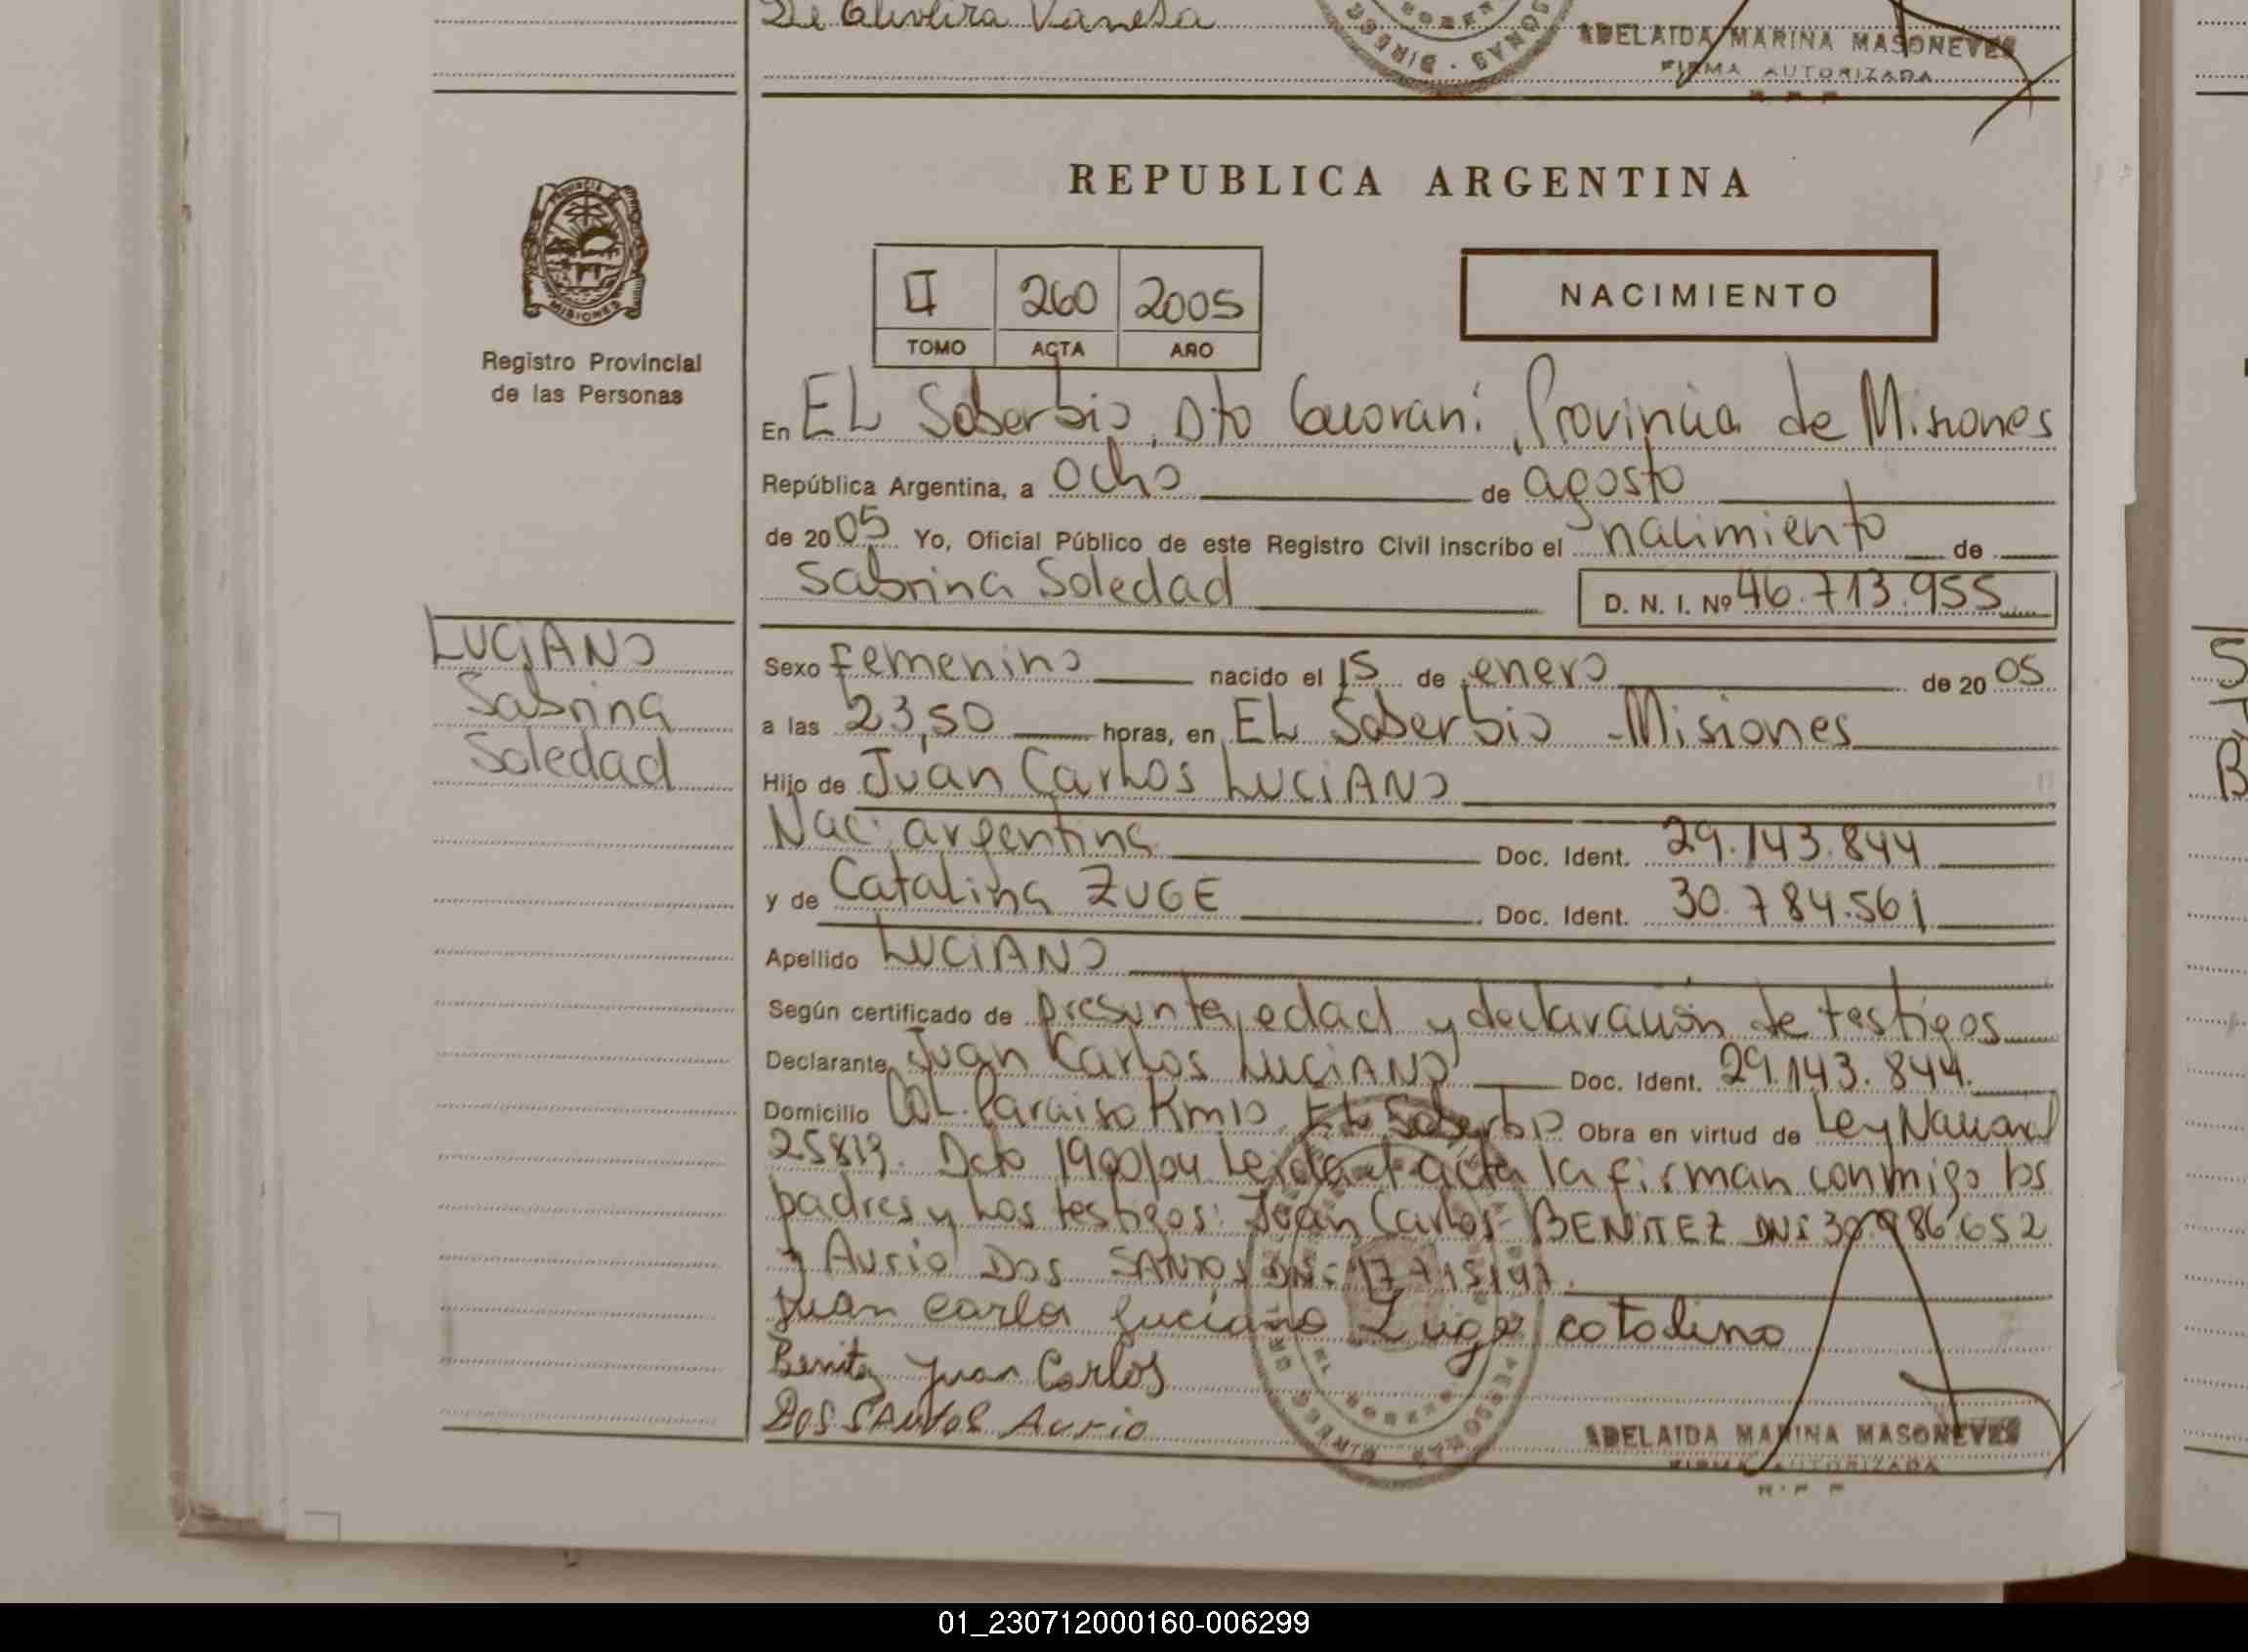 De Oliveira Vanesa
ADELAIDA MARINA MASONEVES
FIRMA AUTORIZADA
R.P.P
REPUBLICA ARGENTINA
PROVINCIA DE
MISIONES
Registro Provincial
de las Personas
II 260 2005
TOMO ACTA AÑO
NACIMIENTO
En EL Soberbio, Dto Guarani, Provincia de Misiones
República Argentina, a ocho de agosto
de 2005 Yo, Oficial Público de este Registro Civil inscribo el nacimiento de
Sabrina Soledad D. N. I. Nº 46.713.955
LUCIANO
Sabrina
Soledad
Sexo femenino nacido el 15 de enero de 2005
a las 23,50 horas, en EL Soberbio - Misiones
Hijo de Juan Carlos LUCIANO
Nac. argentina Doc. Ident. 29.143.844
y de Catalina ZUGE Doc. Ident. 30.784.561
Apellido LUCIANO
Según certificado de presunta edad y declaración de testigos
Declarante Juan Carlos LUCIANO Doc. Ident. 29.143.844.
Domicilio Col. Paraiso Km10. EL Soberbio Obra en virtud de Ley Nacional
25819. Dcto 1900/04 Leida el acta la firman conmigo los
padres y Los testigos: Juan Carlos BENITEZ DNI 30.986652
y Aurio Dos SANTOS DNI
Juan Carlos Luciano Zuge catalina
Benitez Juan Carlos
Dos SANTOS Aurio
ADELAIDA MARINA MASONEVES
FIRMA AUTORIZADA
R.P.P
01_230712000160-006299